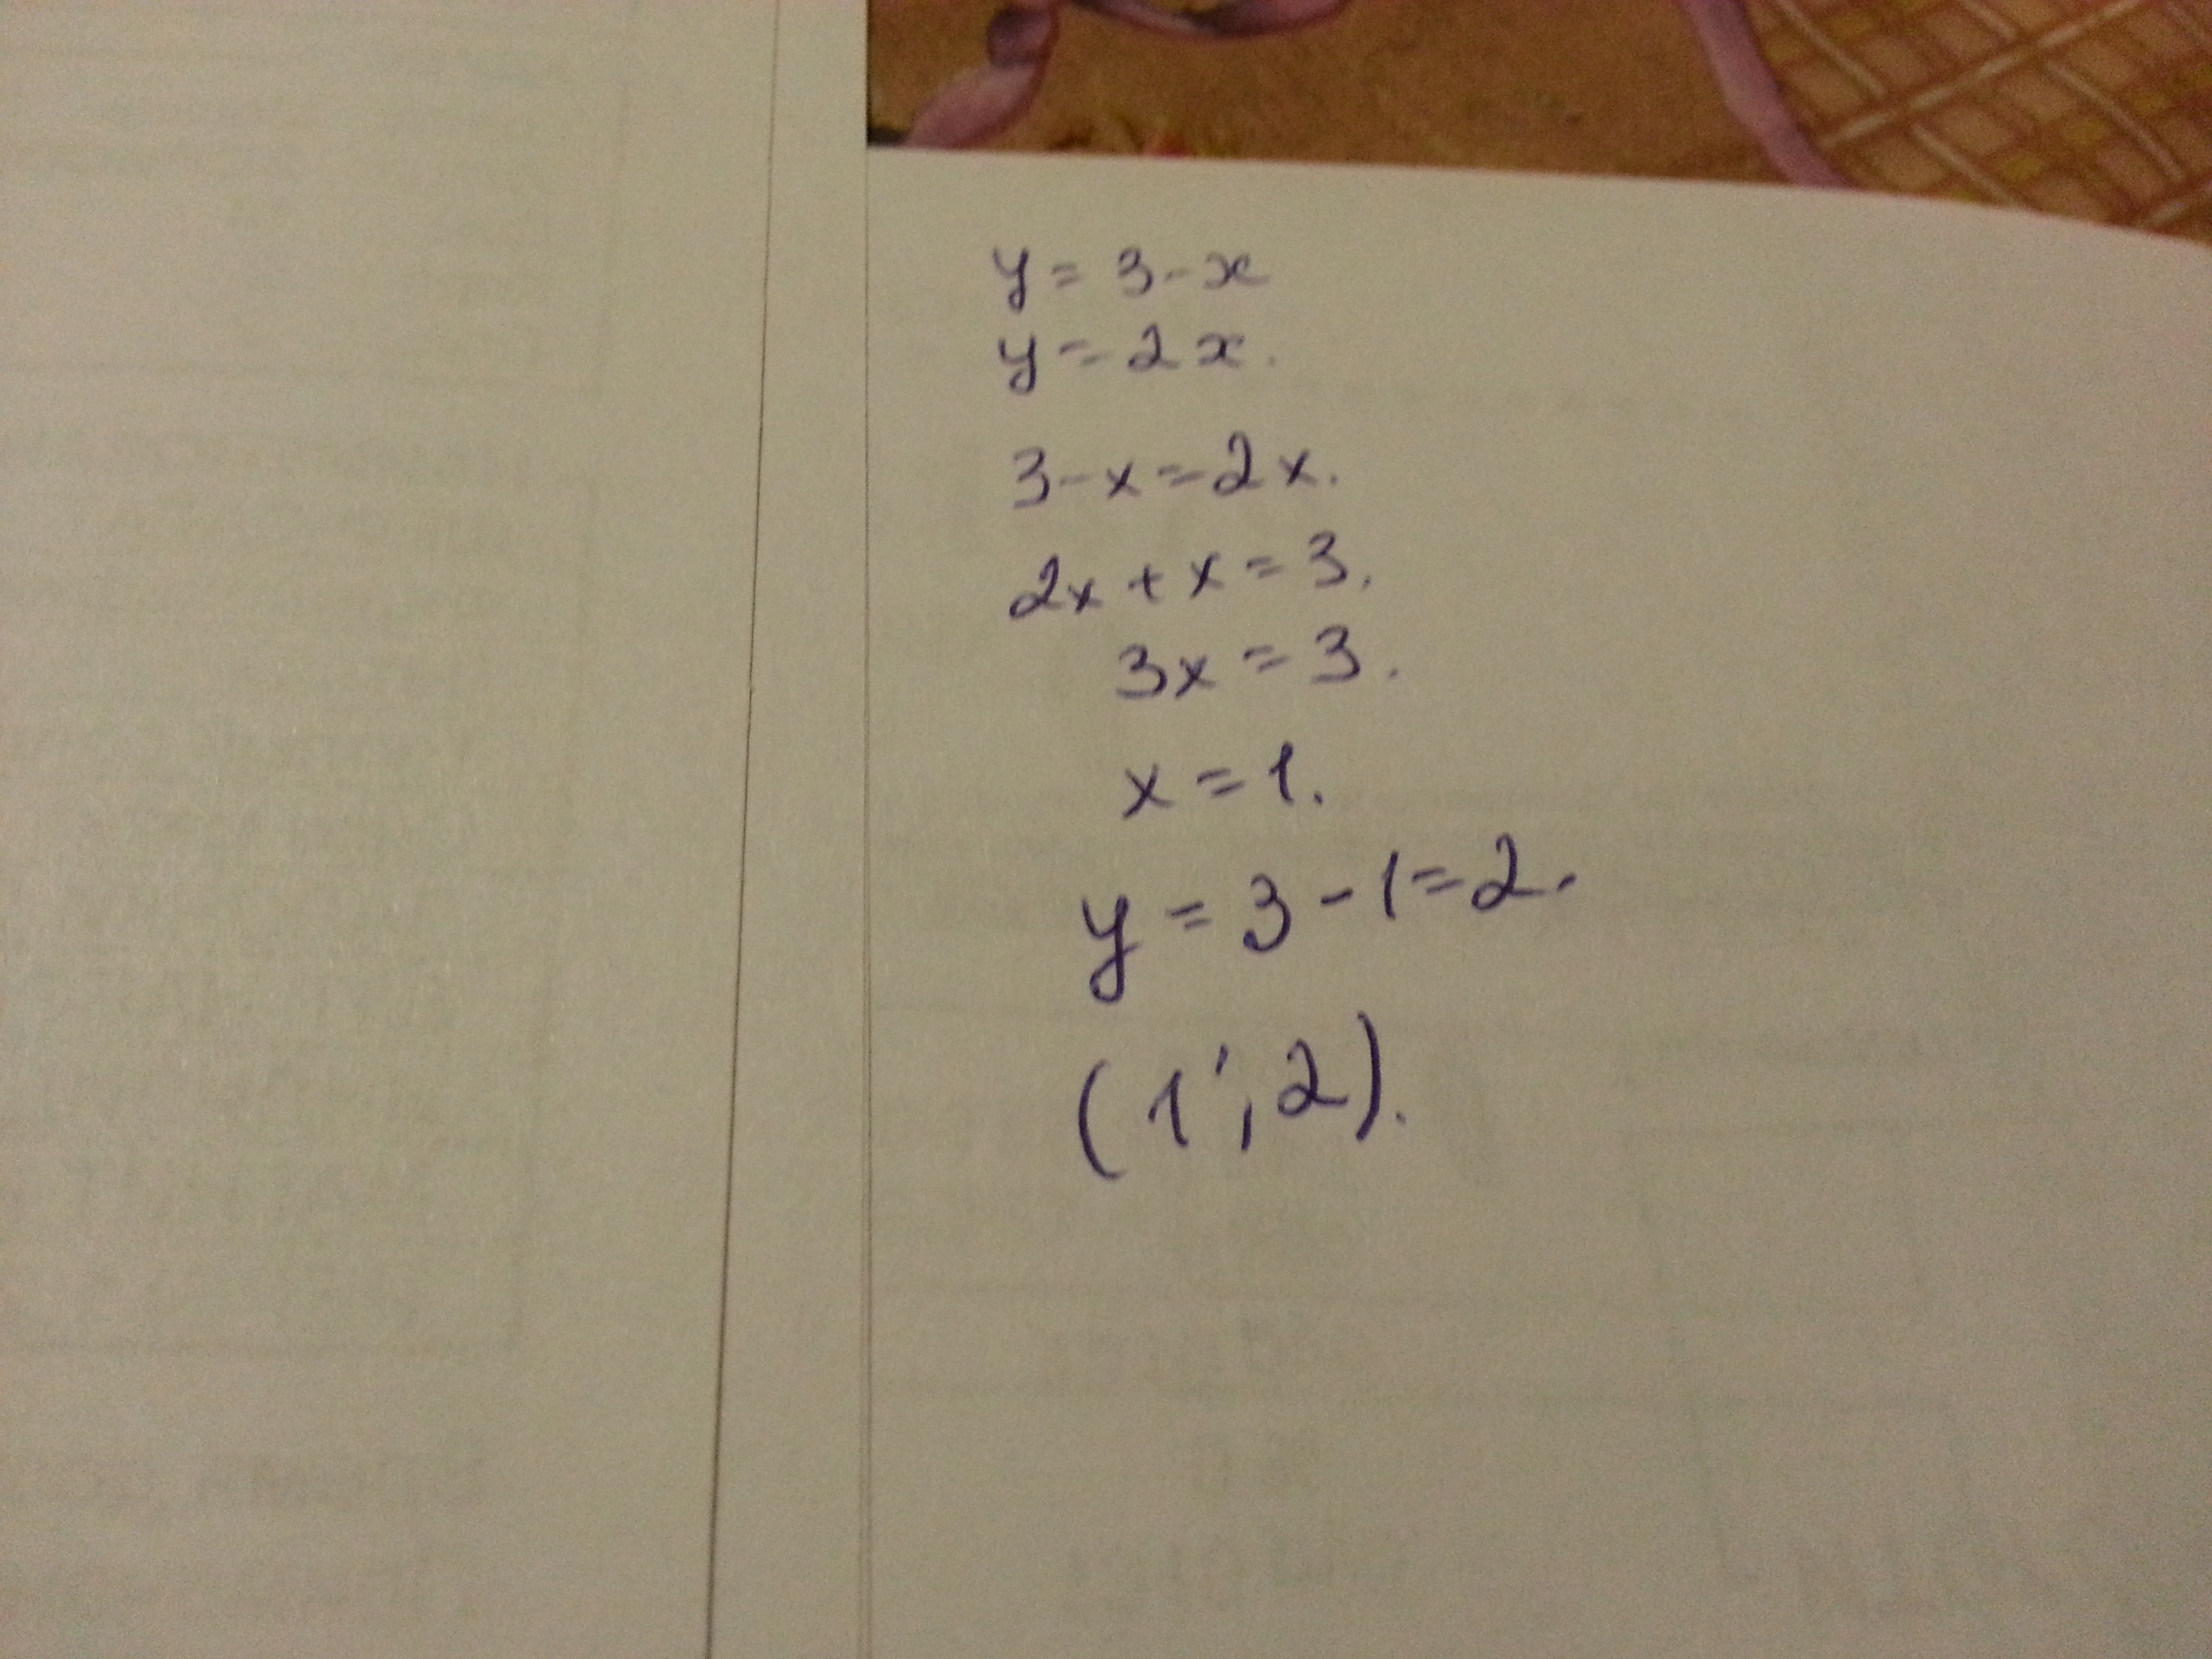 y = 3 - x
y = 2x.
3 - x = 2x.
2x + x = 3.
3x = 3.
x = 1.
y = 3 - 1 = 2.
(1 ; 2).